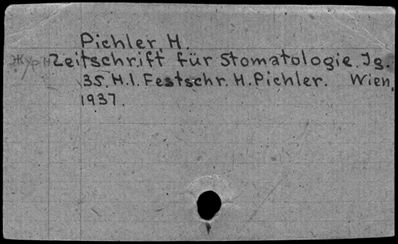 Pichler H.
Журн
Zeitschrift für Stomatologie. Jg.
35. H.1. Festschr. H. Pichler. Wien,
1937.